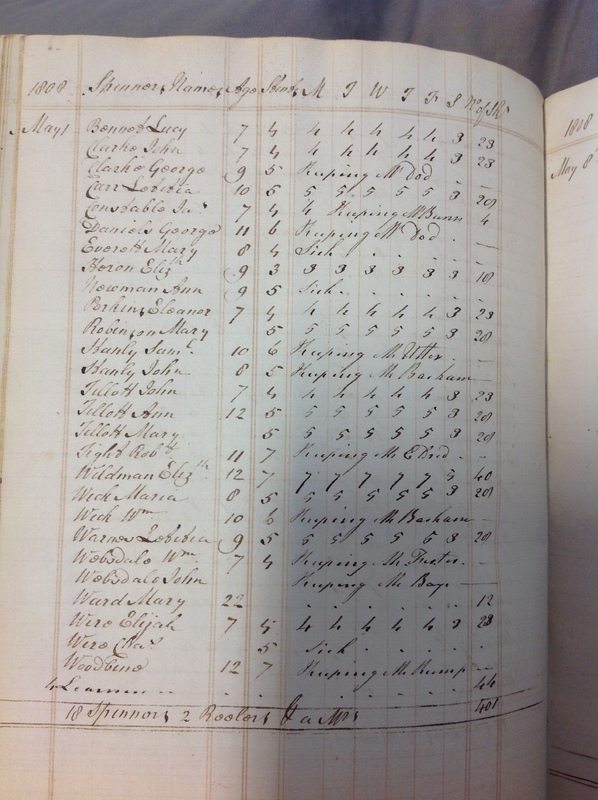 1808 Spinners Names Age Stint M T W T F S No of Sks
May 1 Bennet Lucy 7 4 4 4 4 4 4 3 23
Clarke John 7 4 4 4 4 4 4 3 23
Clarke George 9 5 Keeping Mr Dod -
Carr Letitia 10 5 5 5 5 5 5 3 28
Constable Jas 7 4 4 Keeping Mr Bunn 4
Daniels George 11 6 Keeping Mr Dod . -
Everett Mary 8 4 Sick . . . .
Heron Elizth 9 3 3 3 3 3 3 3 18
Newman Ann 9 5 Sick . . . .
Perkins Eleanor 7 4 4 4 4 4 4 3 23
Robinson Mary 5 5 5 5 5 5 3 28
Stanly Saml 10 6 Keeping Mr Utter . -
Stanly John 8 5 Keeping Mr Bacham -
Tillott John 7 4 4 4 4 4 4 3 23
Tillott Ann 12 5 5 5 5 5 5 3 28
Tillott Mary 5 5 5 5 5 5 3 28
Tight Robt 11 7 Keeping Mr -
Wildman Elizth 12 7 7 7 7 7 7 5 40
Wick Maria 8 5 5 5 5 5 5 3 28
Wick Wm 10 6 Keeping Mr Bacham -
Warnes Letitia 9 5 5 5 5 5 5 3 28
Websdale Wm 7 4 Keeping Mr -
Websdale John Keeping Mr -
Ward Mary 22 . . . . . . 12
Were Elijah 7 4 4 4 4 4 3 23
Were Chas 5 Sick . . . .
Woodbine 12 7 Keeping Mr Kump -
4 Learners . . . . . . 44
18 Spinners 2 Reelers & a Mrs 401
1808
May 8